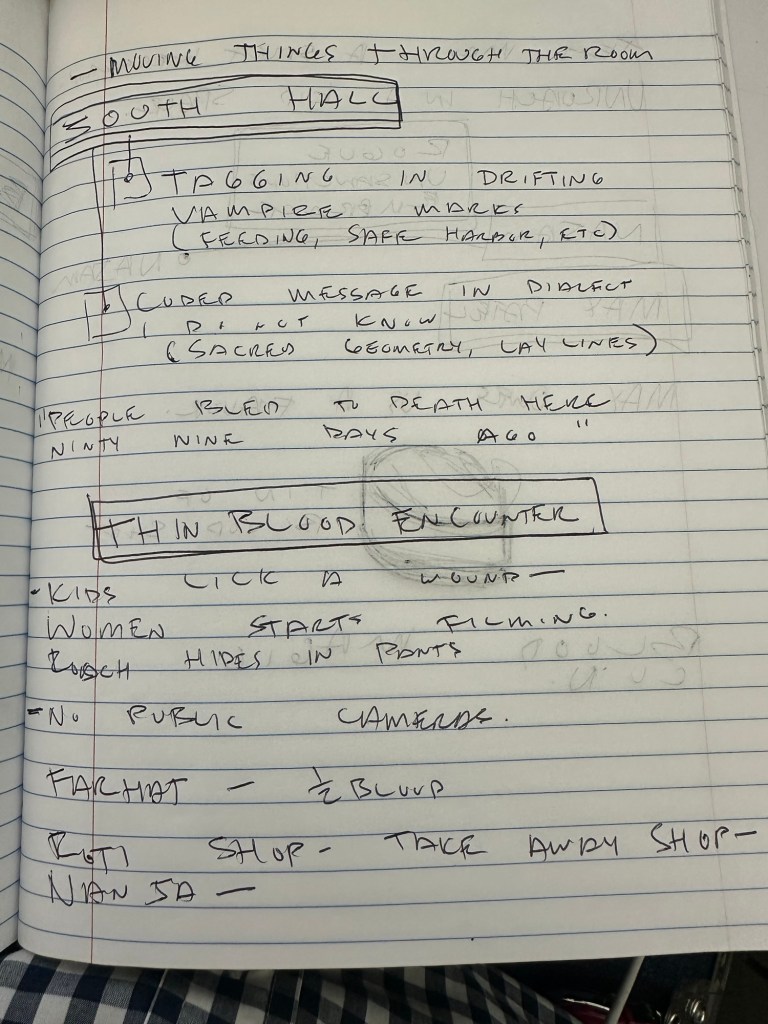 — MOVING THINGS THROUGH THE ROOM
SOUTH HALL
TAGGING IN DRIFTING
VAMPIRE MARKS
(FEEDING, SAFE HARBOR, ETC)
CODED MESSAGE IN DIALECT
I DO NOT KNOW
(SACRED GEOMETRY, LAY LINES)
"PEOPLE BLED TO DEATH HERE
NINTY NINE DAYS AGO"
THIN BLOOD ENCOUNTER
- KIDS LICK A WOUND —
WOMEN STARTS FILMING.
ROACH HIDES IN PANTS
- NO PUBLIC CAMERAS.
FARHAT — ½ BLOOD
ROTI SHOP - TAKE AWAY SHOP —